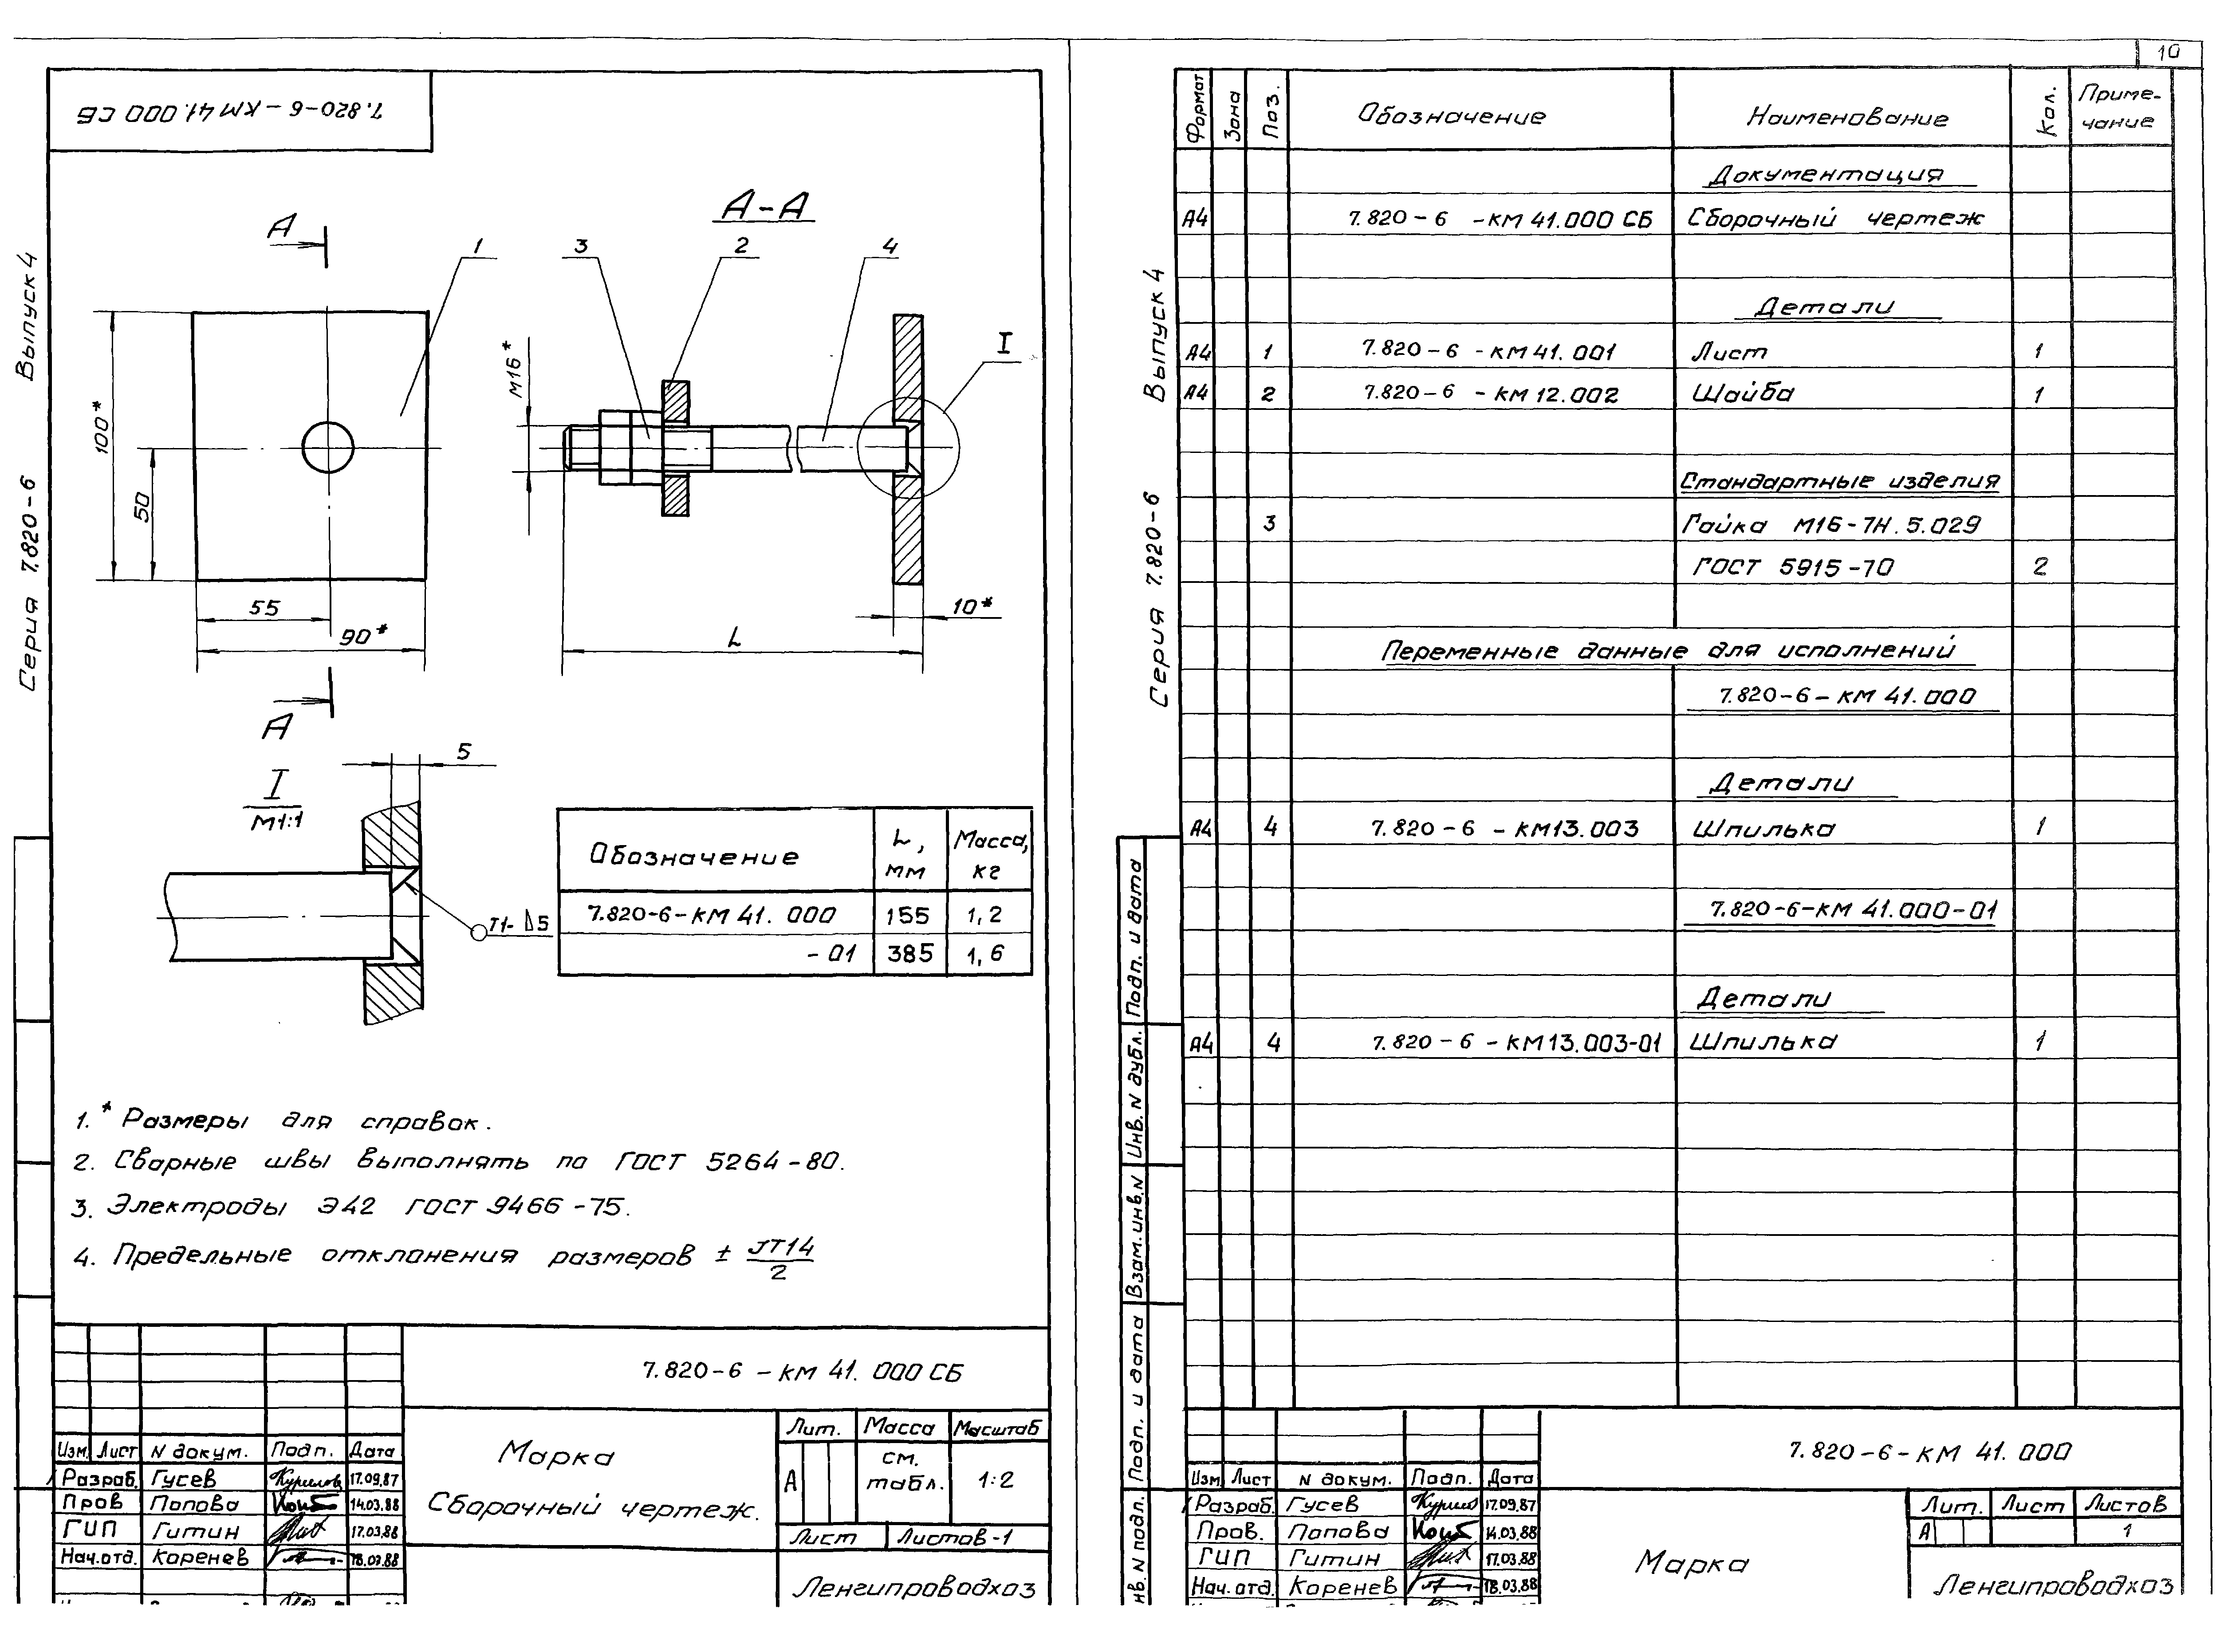 10
7.820-6-КМ 41.000 СБ
Серия 7.820-6 Выпуск 4
А
1
100*
50
55
90*
А
А-А
3
2
4
I
М16*
10*
L
I
М1:1
5
Т1-△5
Обозначение
L, мм
Масса, кг
7.820-6-КМ 41.000 155 1,2
-01 385 1,6
1.* Размеры для справок.
2. Сварные швы выполнять по ГОСТ 5264-80.
3. Электроды Э42 ГОСТ 9466-75.
4. Предельные отклонения размеров ± JT14/2
7.820-6-КМ 41.000 СБ
Изм. Лист N докум. Подп. Дата
Разраб. Гусев 17.09.87
Пров Попова 14.03.88
ГИП Гитин 17.03.88
Нач.отд. Коренев 18.03.88
Марка
Сборочный чертеж.
Лит. Масса Масштаб
А см. табл. 1:2
Лист Листов-1
Ленгипроводхоз
Серия 7.820-6 Выпуск 4
Формат Зона Поз. Обозначение Наименование Кол. Приме-
чание
Документация
А4 7.820-6 -КМ 41.000 СБ Сборочный чертеж
Детали
А4 1 7.820-6 -КМ 41.001 Лист 1
А4 2 7.820-6 -КМ 12.002 Шайба 1
Стандартные изделия
3 Гайка М16-7Н.5.029
ГОСТ 5915-70 2
Переменные данные для исполнений
7.820-6-КМ 41.000
Детали
А4 4 7.820-6 -КМ13.003 Шпилька 1
7.820-6-КМ 41.000-01
Детали
А4 4 7.820-6 -КМ13.003-01 Шпилька 1
Подп. и дата
Инв. N дубл.
Взам. инв. N
Подп. и дата
нв. N подл.
7.820-6-КМ 41.000
Изм. Лист N докум. Подп. Дата
Разраб. Гусев 17.09.87
Пров. Попова 14.03.88
ГИП Гитин 17.03.88
Нач.отд. Коренев 18.03.88
Марка
Лит. Лист Листов
А 1
Ленгипроводхоз